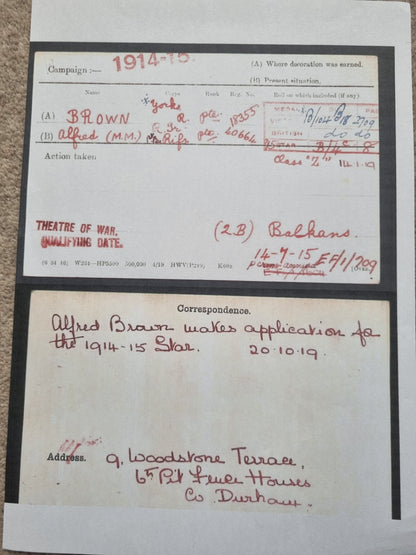 Campaign :— 1914-15.
(A) Where decoration was earned.
(B) Present situation.
Name Corps Rank Reg. No. Roll on which included (if any).
MEDAL
(A) BROWN Yorks R. Pte. 18355
VICTORY
(B) Alfred (M.M.) R. Ir. Rifs Pte. 40664 BRITISH do do
15 STAR
Action taken Class "Z" 14.1.19
THEATRE OF WAR. (2.B) Balkans.
QUALIFYING DATE. 14-7-15 EF/1/209
(6 34 46) W234—HP5500 500,000 4/19 HWV(P240) K608
Correspondence.
Alfred Brown makes application for
the 1914-15 Star. 20.10.19.
Address. 9, Woodstone Terrace,
Pit Fence Houses
Co Durham.